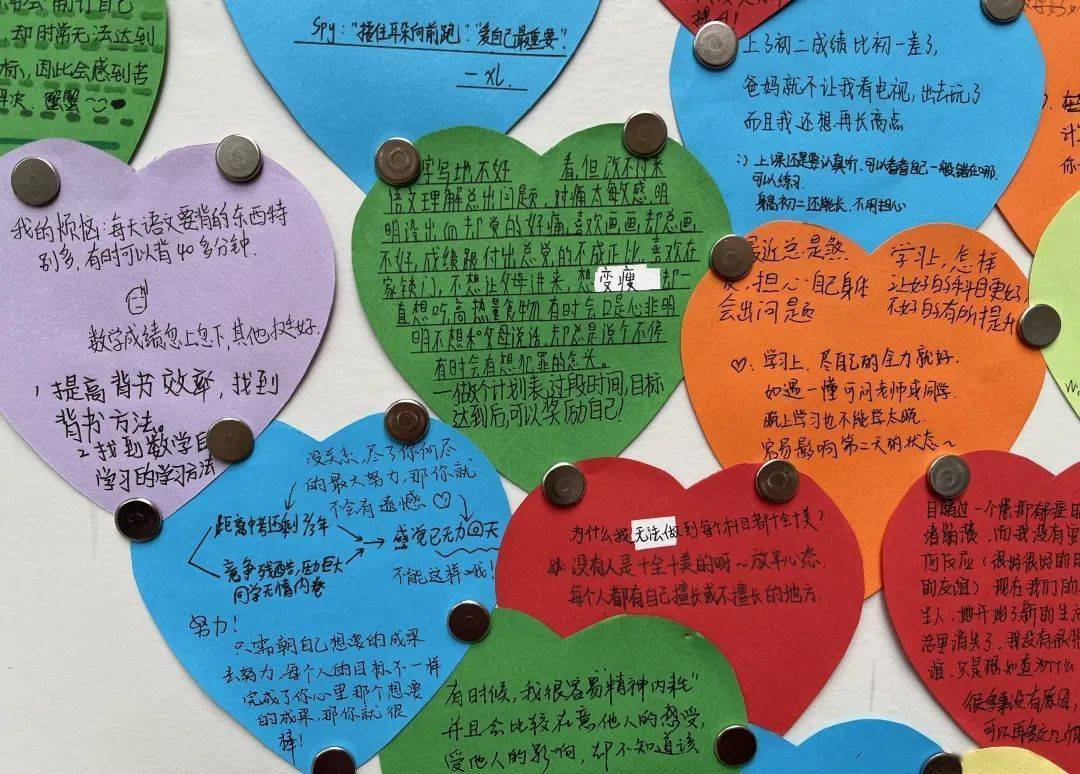 却时常无法达到
标，因此会感到苦
蟹蟹~
spy："捂住耳朵向前跑""爱自己最重要"
—xL.
上了初二成绩比初一差了，
爸妈就不让我看电视，出去玩了
而且我还想再长高点
：）上课还是要认真听，可以看看自己一般错在哪
可以练习.
身高初二还能长，不用担心
我的烦恼：每天语文要背的东西特
别多，有时可以背40多分钟.
数学成绩忽上忽下，其他挺好.
1 提高背书效率，找到
背书方法。
2.找到数学
学习的学习方法
字写地不好 看，但改不过来
语文理解总出问题，对痛太敏感，明
明没出 却觉的好痛，喜欢画画，却总画
不好，成绩跟付出总觉的不成正比，喜欢在
家锁门，不想让父母进来，想变瘦 却一
直想吃高热量食物 有时会口是心非明
明不想和父母说话，却总是说个不停
有时会有想犯罪的念头。
—做个计划表，过段时间，目标
达到后，可以奖励自己！
最近总是熬
夜，担心自己身体
会出问题
学习上，怎样
让好的科目更好，
不好的有所提升
♡：学习上，尽自己的全力就好.
如遇一懂可问老师或同学.
晚上学习也不能学太晚.
容易影响第二天的状态~
没关系，尽了你所尽
的最大努力，那你就
不会有遗憾♡
距离中考还剩 年
竞争残酷，压力巨大
同学无情内卷
感觉已无力回天
不能这样 哦！
努力！
只需朝自己想要的成果
去努力，每个人的目标不一样
完成了你心里那个想要
的成果，那你就很
棒！
为什么我无法做到每个科目都十全十美？
没有人是十全十美的呀~放平心态，
每个人都有自己擅长或不擅长的地方.
有时候，我很容易"精神内耗"
并且会比较在意他人的感受，
受他人的影响，却不知道该
消消消，而我没有
何反应（很好很好的
的友谊）.现在我们的
生人，她开始了新的生
活里消失了，我没有很
谊，只是很想知道为什么
很多事没有原因，
可以再多交几个